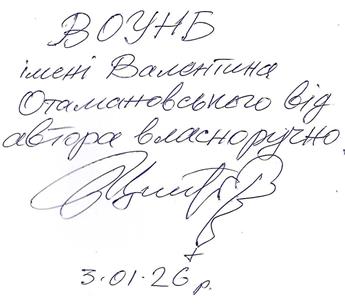 ВОУНБ
імені Валентина
Отамановського від
автора власноручно.
3.01.26 р.